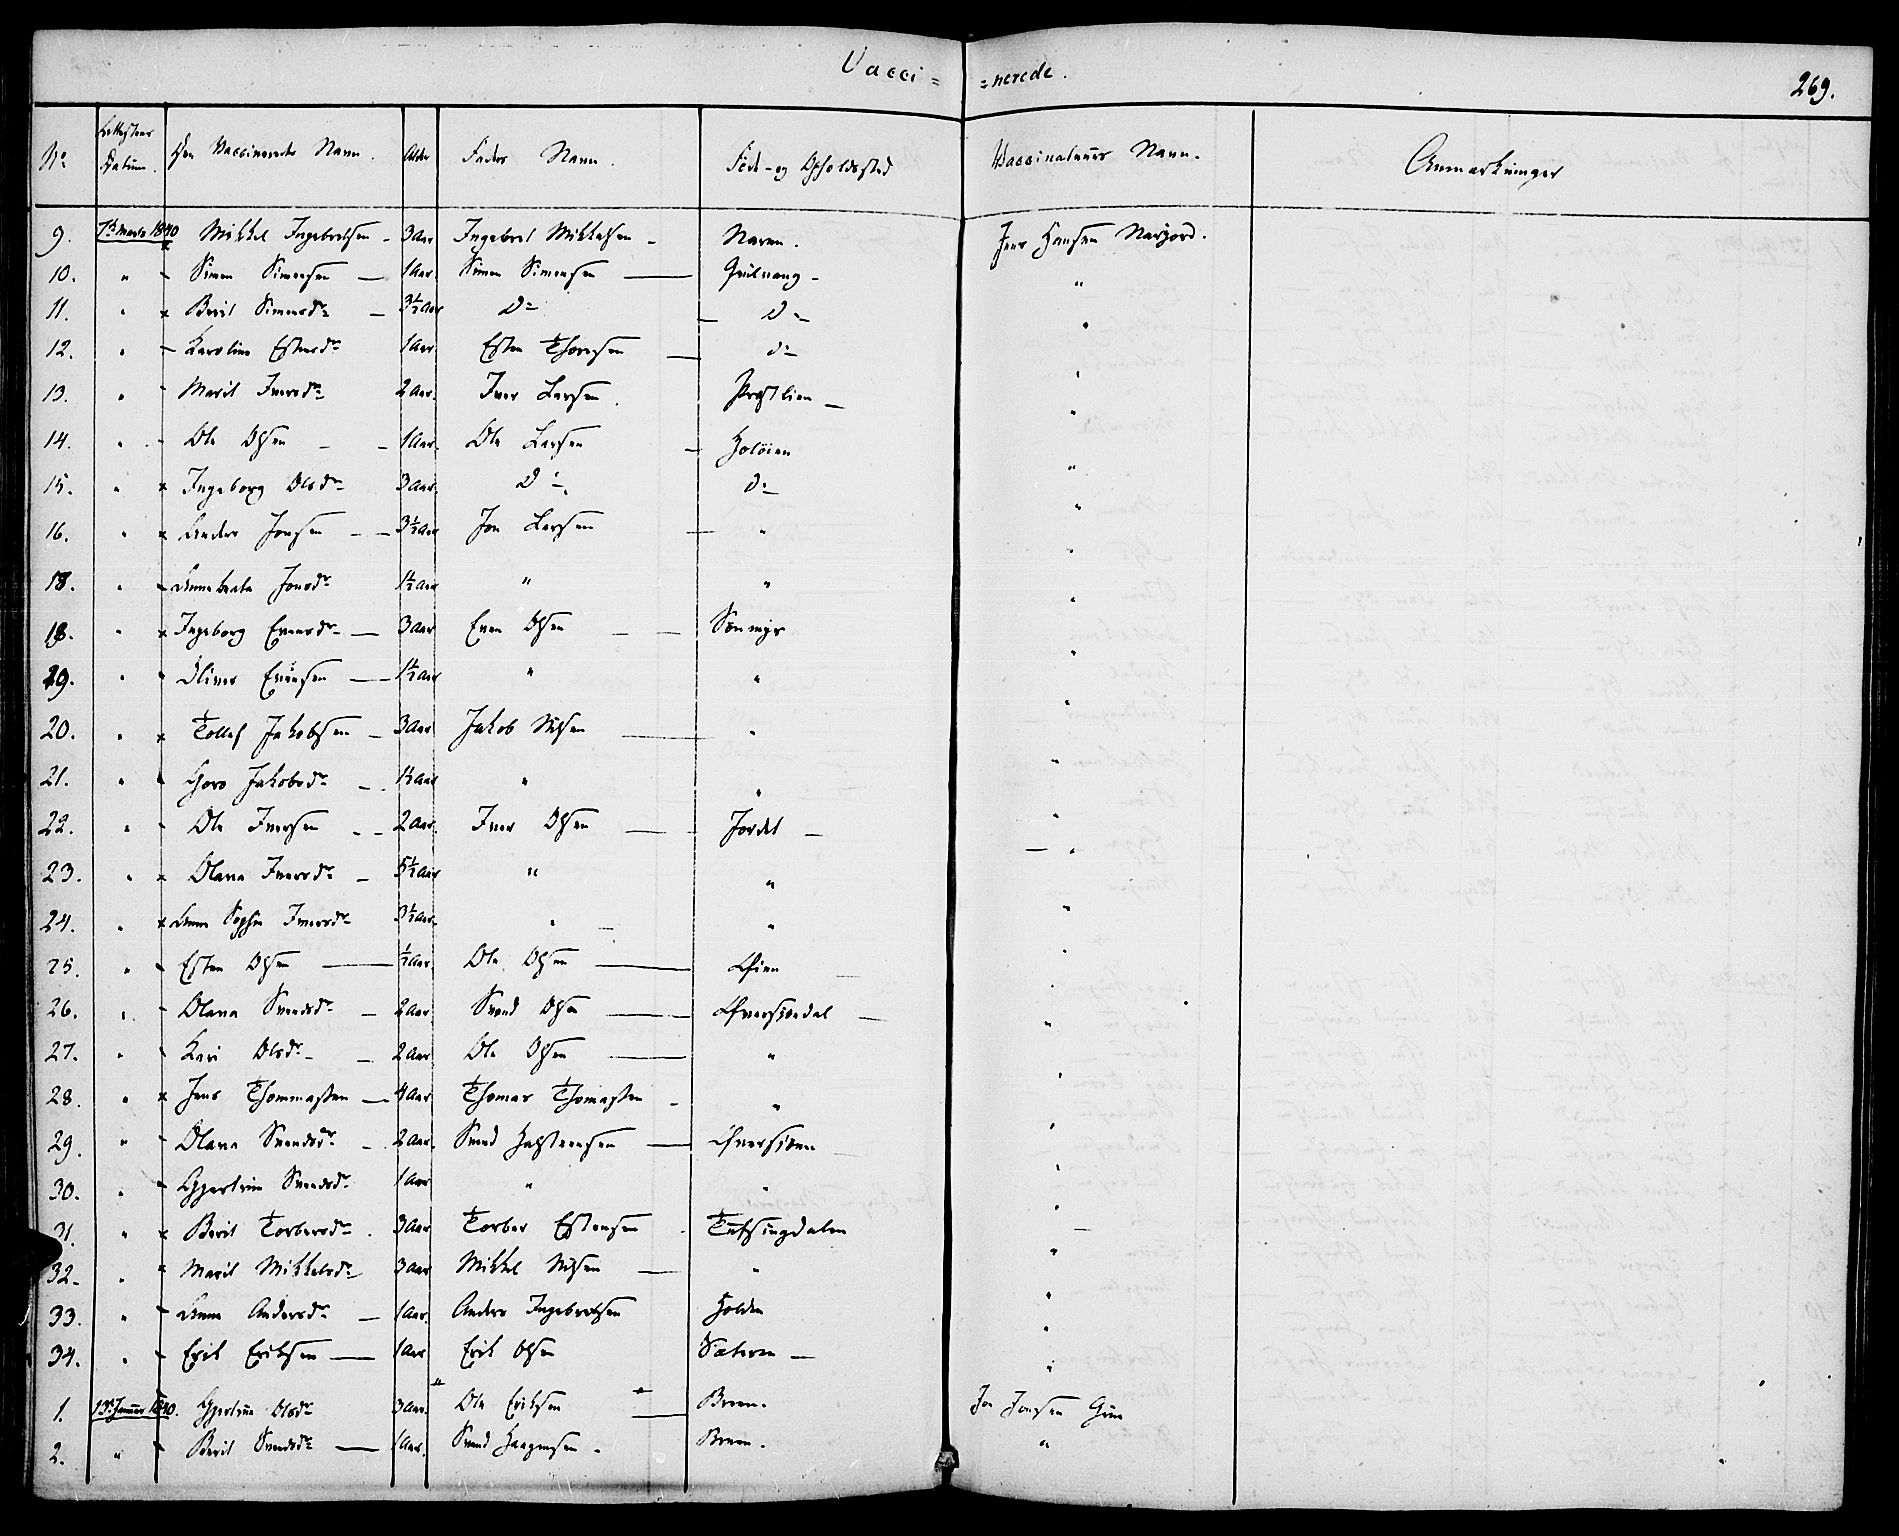 Vacci= =nerede. 269.
No Attestens Datum. Den Vaccineredes Navn. Alder Faders Navn. Føde- og Opholdssted Vaccinateurs Navn. Anmærkninger
9. 1840 x Mikkel Ingebretsen - 3 Aar Ingebret Mikkelsen - Naren. Jens Hansen Narjord.
10. " - Simen Simensen — 1 Aar. Simen Simensen — "
11. " x Berit Simensdr — 3½ Aar Do — Do "
12. " - Karoline Estensdr 1 Aar Esten Thoresen — do "
13. " - Marit Iversdr 2 Aar. Iver Larsen. Præstlien — "
14. " - Ole Olsen - - 1 Aar. Ole Larsen — Holøien "
15. " x Ingeborg Olsdr 3 Aar. Do. Do "
16. " x Anders Jonsen - - 3½ Aar Jon Larsen — " "
18. " - Anne Beate Jonsdr 1½ Aar " " "
18. " x Ingeborg Evensdr — 3 Aar Even Olsen — — Sønmyr "
19. " - Oliver Evensen — 1½ Aar " " "
20. " x Tollef Jakobsen — 3 Aar Jakob Nilsen — " "
21. " - Goro Jakobsdr - 1½ Aar " " "
22. " - Ole Iversen - - 2 Aar. Iver Olsen — Jordet — "
23. " x Olava Iversdr - 5½ Aar " " — "
24. " x Anne Sophie Iversdr 3½ Aar. " " "
25. " - Esten Olsen — ½ Aar. Ole Olsen — Øien "
26. " - Olava Svendsdr — 2 Aar. Svend Olsen — Øversjødal — "
27. " - Kari Olsdr - — 2 Aar Ole Olsen — " "
28. " x Jens Thommassen — 4 Aar Thomas Thomassen - " "
29. " - Olava Svendsdr - 2 Aar. Svend Halstensen — Øversjøen "
30. " - Gjertrue Svendsdr 1 Aar " " "
31. " x Berit Torbersdr. 3 Aar Torber Estensen. Tufsingdalen "
32. " x Marit Mikkelsdr 3 Aar Mikkel Nilsen — " "
33. " - Anne Andersdr — 1 Aar. Anders Ingebretsen Holden "
34. " - Erik Eriksen — 1 Aar Erik Olsen Sæteren — "
1. 13 Januar 1840. Gjertrue Olsdr 3 Aar. Ole Eriksen — Breen. Jon Jonsen
2. " - Berit Svendsdr — 1 Aar. Svend Haagensen - Breen. "